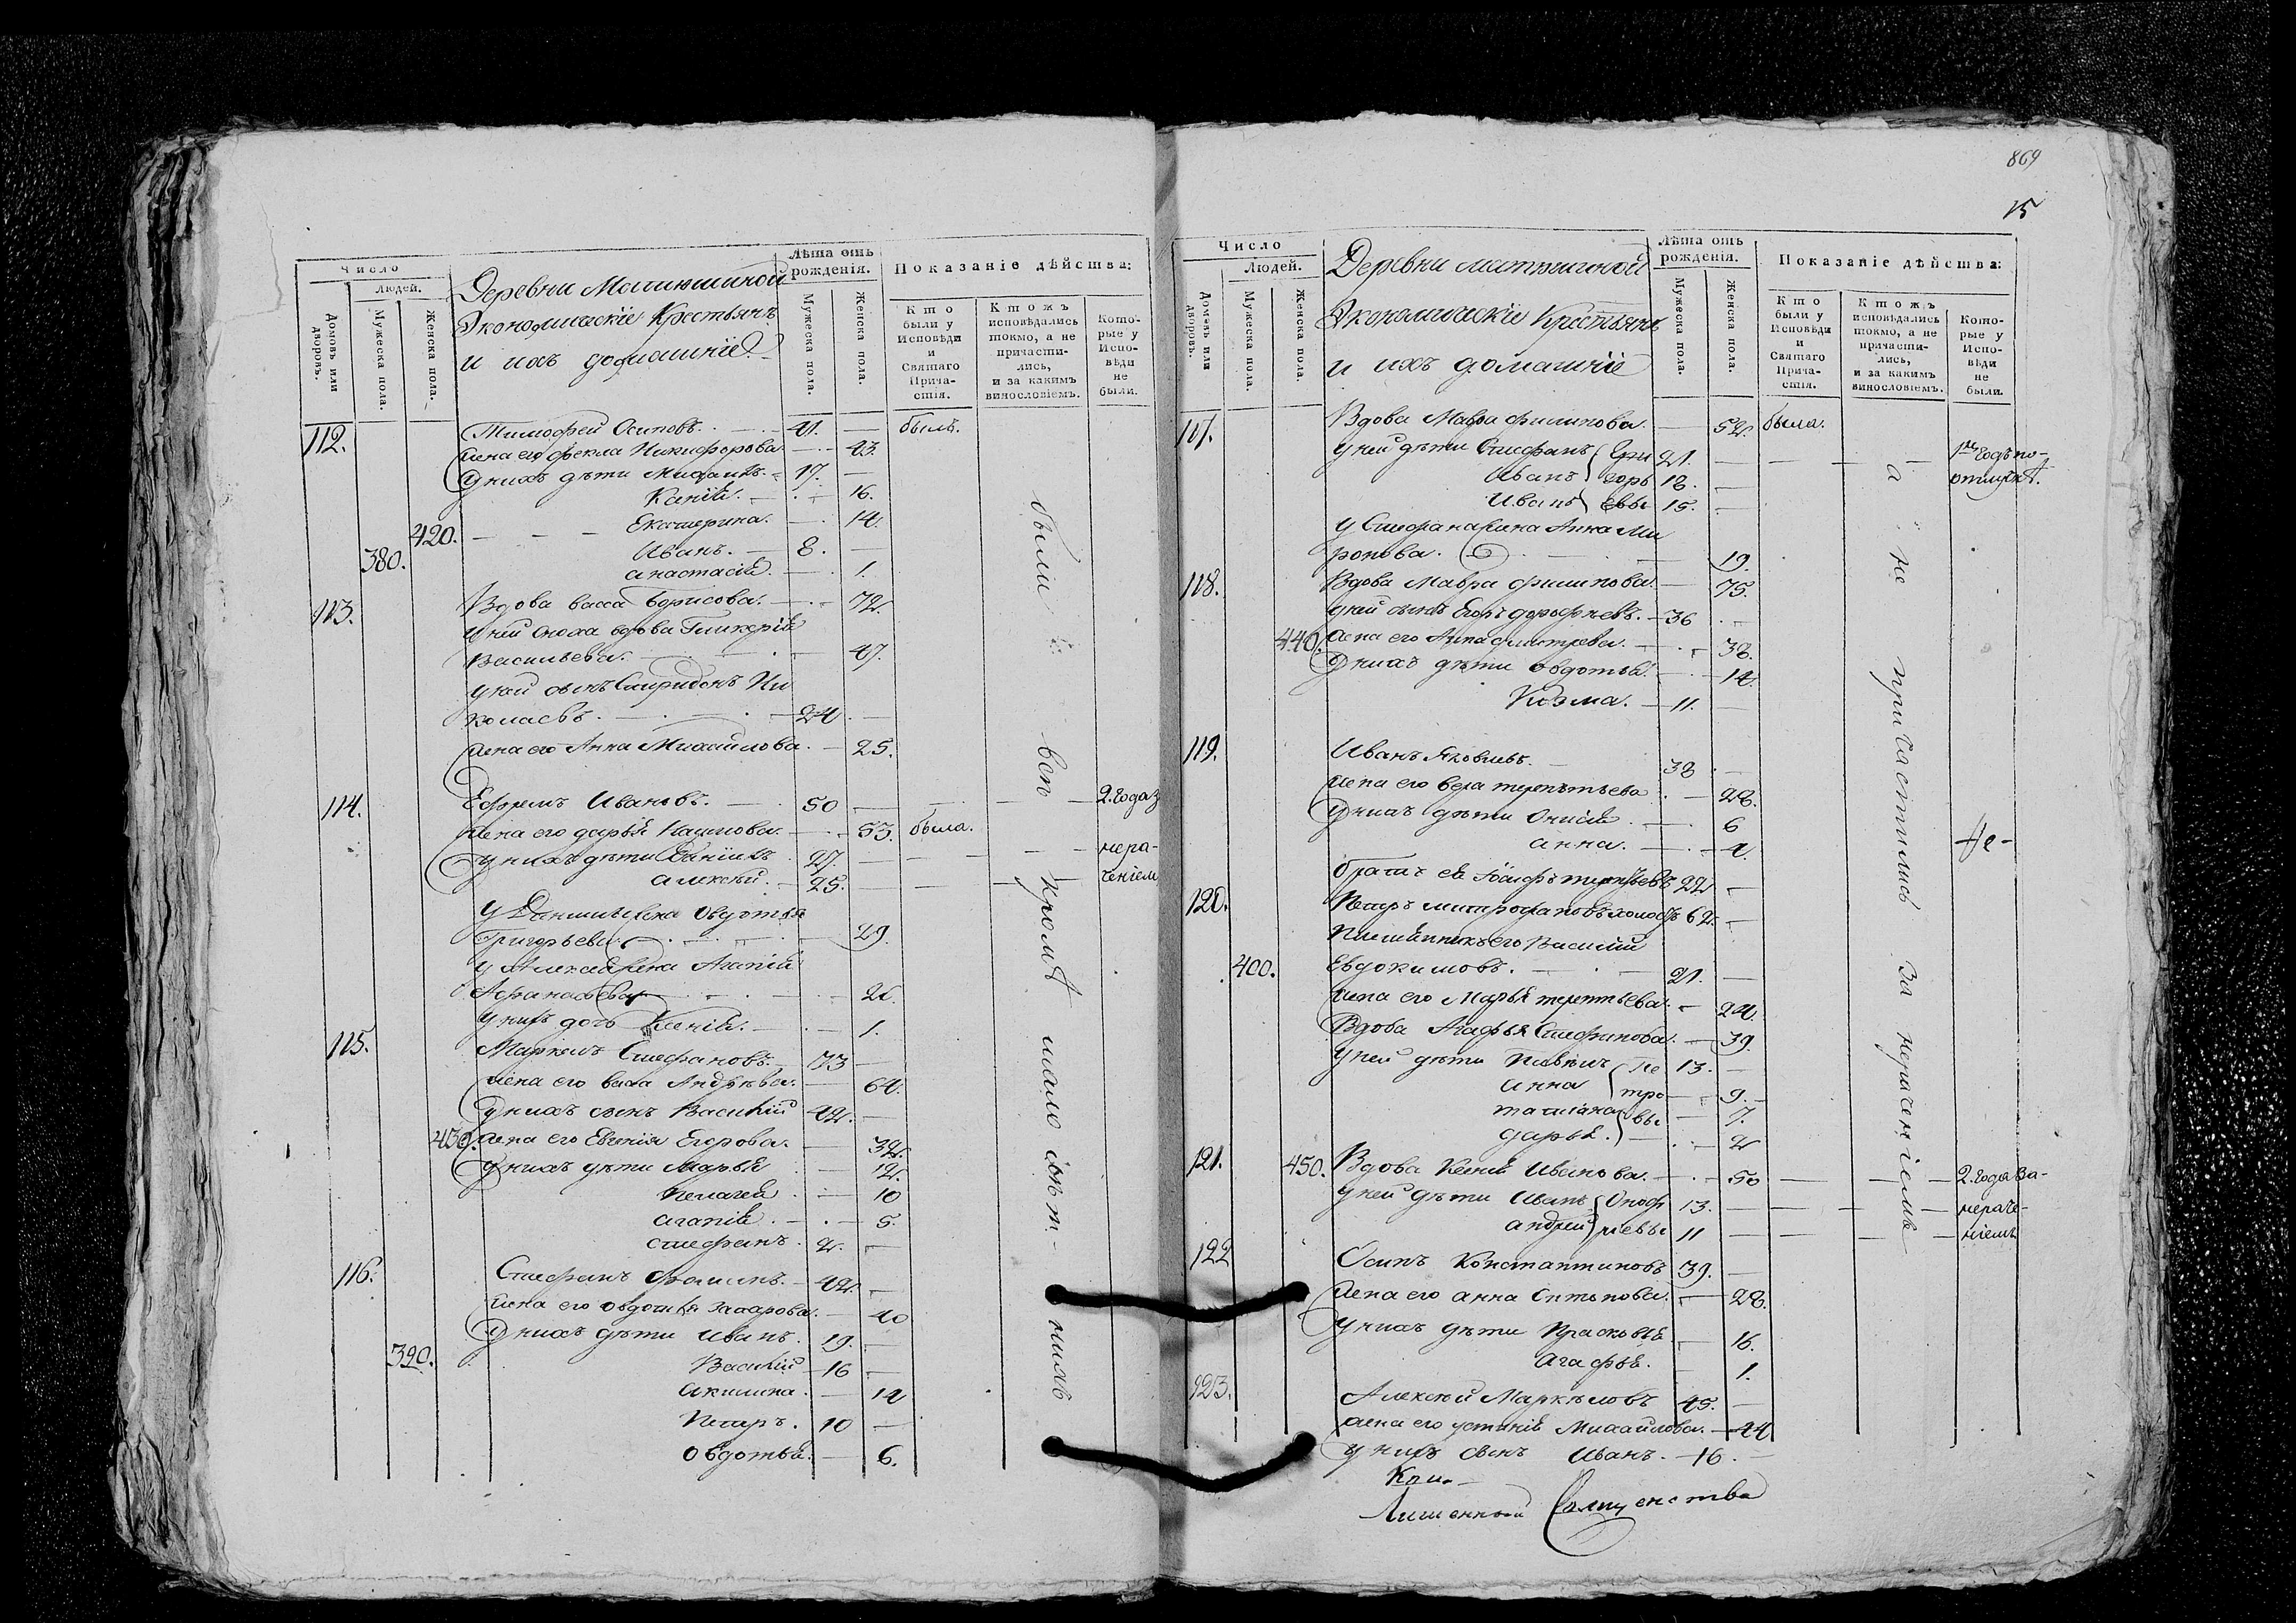 Число
Людей.
Домовъ или дворовъ.
Мужеска пола.
Женска пола.
Деревни
Экономическіе Крестьянъ
и ихъ домашніе
Лѣта отъ рожденія.
Мужеска пола.
Женска пола.
Показаніе дѣйства:
Кто были у Исповѣди и Святаго Причастія.
Ктожъ исповѣдались токмо, а не причастились, и за какимъ винословіемъ.
Которые у Исповѣди не были.
112. Тимофей Осиповъ. 41. былъ.
жена его Фекла Никифорова 43.
у нихъ дѣти Михаилъ. 17.
16.
420. Екатерина. 14.
380. Иванъ. 8.
анастасія. 1.
113. Вдова васса Борисова. 72.
у ней сноха вдова Гликерія
Васильева. 47.
у ней сынъ Спиридонъ Ни
колаевъ. 24
жена его Анна Михайлова. 25.
114. Ефремъ Ивановъ. 50 2. года з
жена его дарья Наумова. 53. была.
у нихъ дѣти Даніилъ 27. нера-
алексѣй. 25. ченіем
у Даниила жена Овдотья
Григорьева. 29.
у Алексея жена Агапія
Афанасьева 26.
у нихъ дочь Ксенія. 1.
115. Маркелъ Стефановъ. 73
жена его васса Андрѣева. 64.
у нихъ сынъ Василій 42.
430. жена его Евгенія Егорова. 32.
у нихъ дѣти Марья 12.
Пелагея 10
агапія. 5.
стефанъ. 2.
116. Стефанъ Фоминъ. 42.
жена его овдотья захарова. 40
у нихъ дѣти Иванъ. 19.
390. Василій 16
акилина. 12
Петръ. 10
Овдотья. 6.
были всѣ кромѣ мало лѣт- нихъ
869
15
Число
Людей.
Домовъ или дворовъ.
Мужеска пола.
Женска пола.
Деревни
Экономическіе Крестьяне
и ихъ домашніе
Лѣта отъ рожденія.
Мужеска пола.
Женска пола.
Показаніе дѣйства:
Кто были у Исповѣди и Святаго Причастія.
Ктожъ исповѣдались токмо, а не причастились, и за какимъ винословіемъ.
Которые у Исповѣди не были.
117. Вдова Мавра филипова. 52. была.
у ней дѣти Стефанъ Гри 21. 1й годъ по-
Иванъ горь 18. отлучкѣ.
Иванъ евы 15.
у Стефана жена Анна Ми
ронова. 19.
118. Вдова Мавра филипова. 75.
у ней сынъ Егоръ дорофѣевъ. 36
440. жена его Анна дмитрева. 38.
у нихъ дѣти овдотья. 14.
Козма. 11.
119. Иванъ Яковлевъ. 38
жена его вера терентьева 28.
у нихъ дѣти 6
анна. 4.
братъ ея Іосифъ терентьевъ 22
120. Петръ митрофановъ холостъ 62.
Племянникъ его Василій
400. Евдокимовъ. 21.
жена его Марья терентьева. 24.
Вдова Агафья Стефанова. 39.
у ней дѣти Павелъ Пе 13.
анна тро 9.
татіана вы 7.
дарья. 2
121. 450. Вдова Ксенія Иванова. 50 2. года за-
у ней дѣти Иванъ Оноф 13. нераче-
андрей ріевы 11 ніемъ
122 Осипъ Константиновъ 39.
жена его анна Антонова. 28.
у нихъ дѣти Прасковья 16.
Агафья. 1.
123. Алексѣй Маркѣловъ 45.
жена его устинія Михайлова. 44
у нихъ сынъ Иванъ. 16.
а не причастились За нераченіемъ
Не-
Лишенной Священства